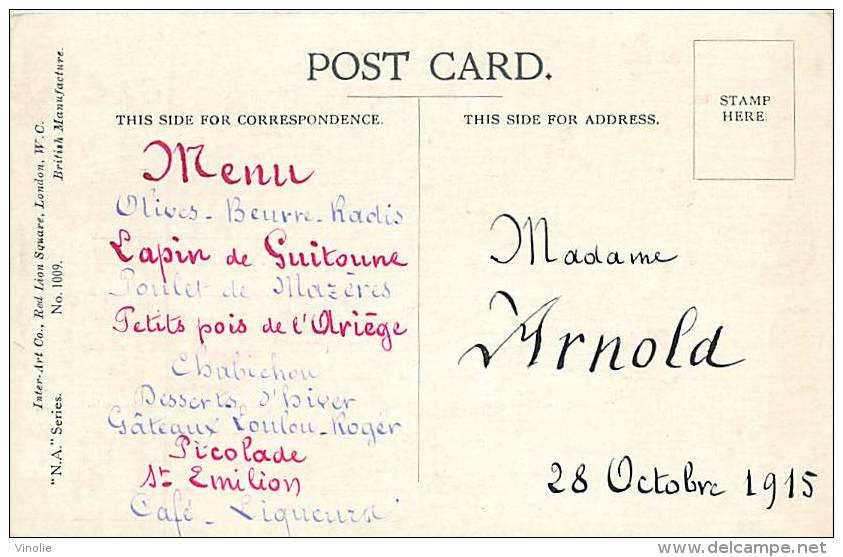 POST CARD.
THIS SIDE FOR CORRESPONDENCE.
THIS SIDE FOR ADDRESS.
STAMP
HERE
Inter-Art Co., Red Lion Square, London, W.C.
British Manufacture.
"N.A." Series.
No. 1009.
Menu
Olives - Beurre - Radis
Lapin de Guitoune
Poulet de Mazères
Petits pois de l'Ariège
Chabichou
Desserts d'hiver
Gâteaux Loulou-Roger
Picolade
St Emilion
Café - Liqueurs
Madame
Arnold
28 Octobre 1915
Vinolie
http://www.delcampe.net